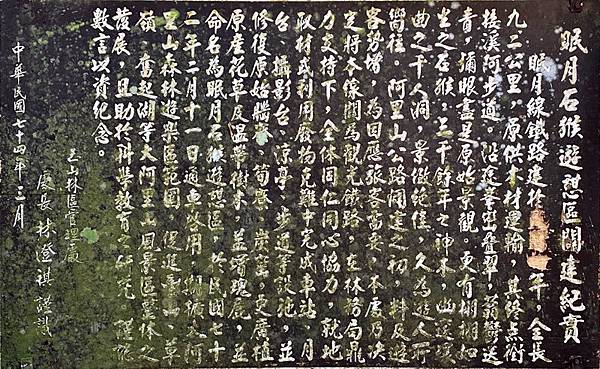 眠月石猴遊憩區闢建紀實
眠月線鐵路建於　　　年，全長
九二公里，原供木材運輸，其終點銜
接溪阿步道。沿途峯巒疊翠，蓊鬱送
青，彌眼盡是原始景觀。更有栩栩如
生之石猴，三千餘年之神木，幽邃
曲之千人洞，景緻絕佳，久為遊人所
嚮往。阿里山公路闢建之初，料及遊
客勢增，為因應旅客需求，本處乃決
定將本線闢為觀光鐵路，在林務局鼎
力支持下，全体同仁同心協力，就地
取材或利用廢物克難中完成車站、月
台、攝影台、涼亭、步道等設施，並
修復原始、炭窯，更廣植
原產花草及溫帶樹木，並
命名為眠月石猴遊憩區，於民國七十
二年二月十一日通車啓用，阿
里山森林遊樂區範圍，促進、草
嶺、奮起湖等大阿里山風景區整体之
發展，且助於科學教育之研究，謹綴
數言以資紀念。
玉山林區管理處
處長 林澄祺 謹識
中華民國七十四年三月